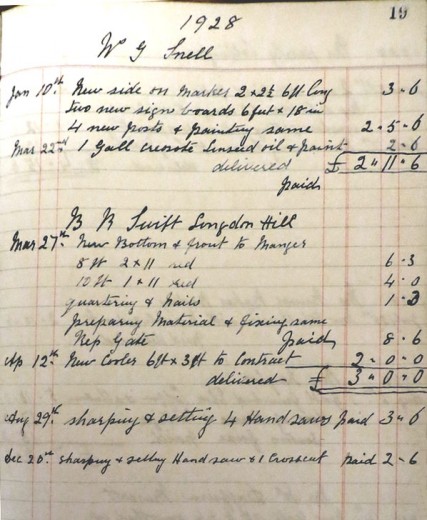 19
1928
W G Snell
Jan 10th New side on Manger 2 x 2½ 6ft long 3 - 6
two new sign boards 6 feet x 18 in
4 new posts & painting same 2 - 5 - 6
Mar 22nd 1 Gall creosote Linseed oil & paint 2 - 6
delivered £ 2 " 11 - 6
paid
B R Swift Longdon Hill
Mar 27th New Bottom & front to Manger
8 ft 2 x 11 red 6 - 3
10 ft 1 x 11 red 4 - 0
quartering & nails 1 - 3
preparing Material & fixing same
Nep Gate Paid 8 - 6
Ap 12th New Cooler 6ft x 3ft to Contract 2 - 0 - 0
delivered £ 3 " 0 - 0
Aug 29th sharping & setting 4 Hand saws paid 3 - 6
Dec 20th sharping & setting Hand saw & 1 Crosscut paid 2 - 6